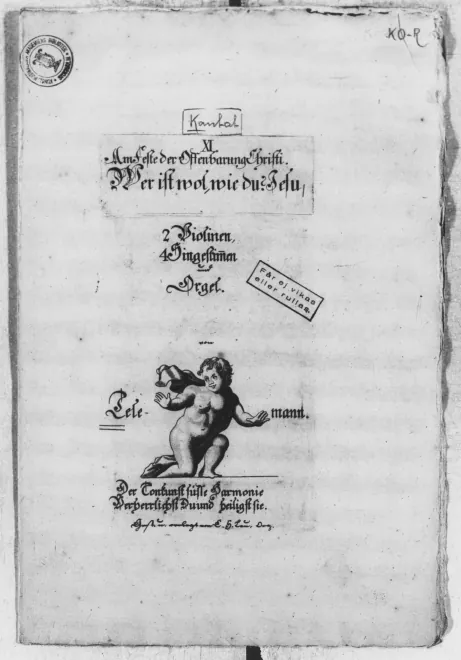 KO-R
Kantat
XI.
Am Feste der Offenbarung Christi.
Wer ist wol, wie du? Jesu,
2 Violinen,
4 Singestimen
Orgel.
von
Tele- mann.
Får ej vikas
eller rullas.
Der Tonkunst süsse Harmonie
Verherrlichst Du und heiligst sie.